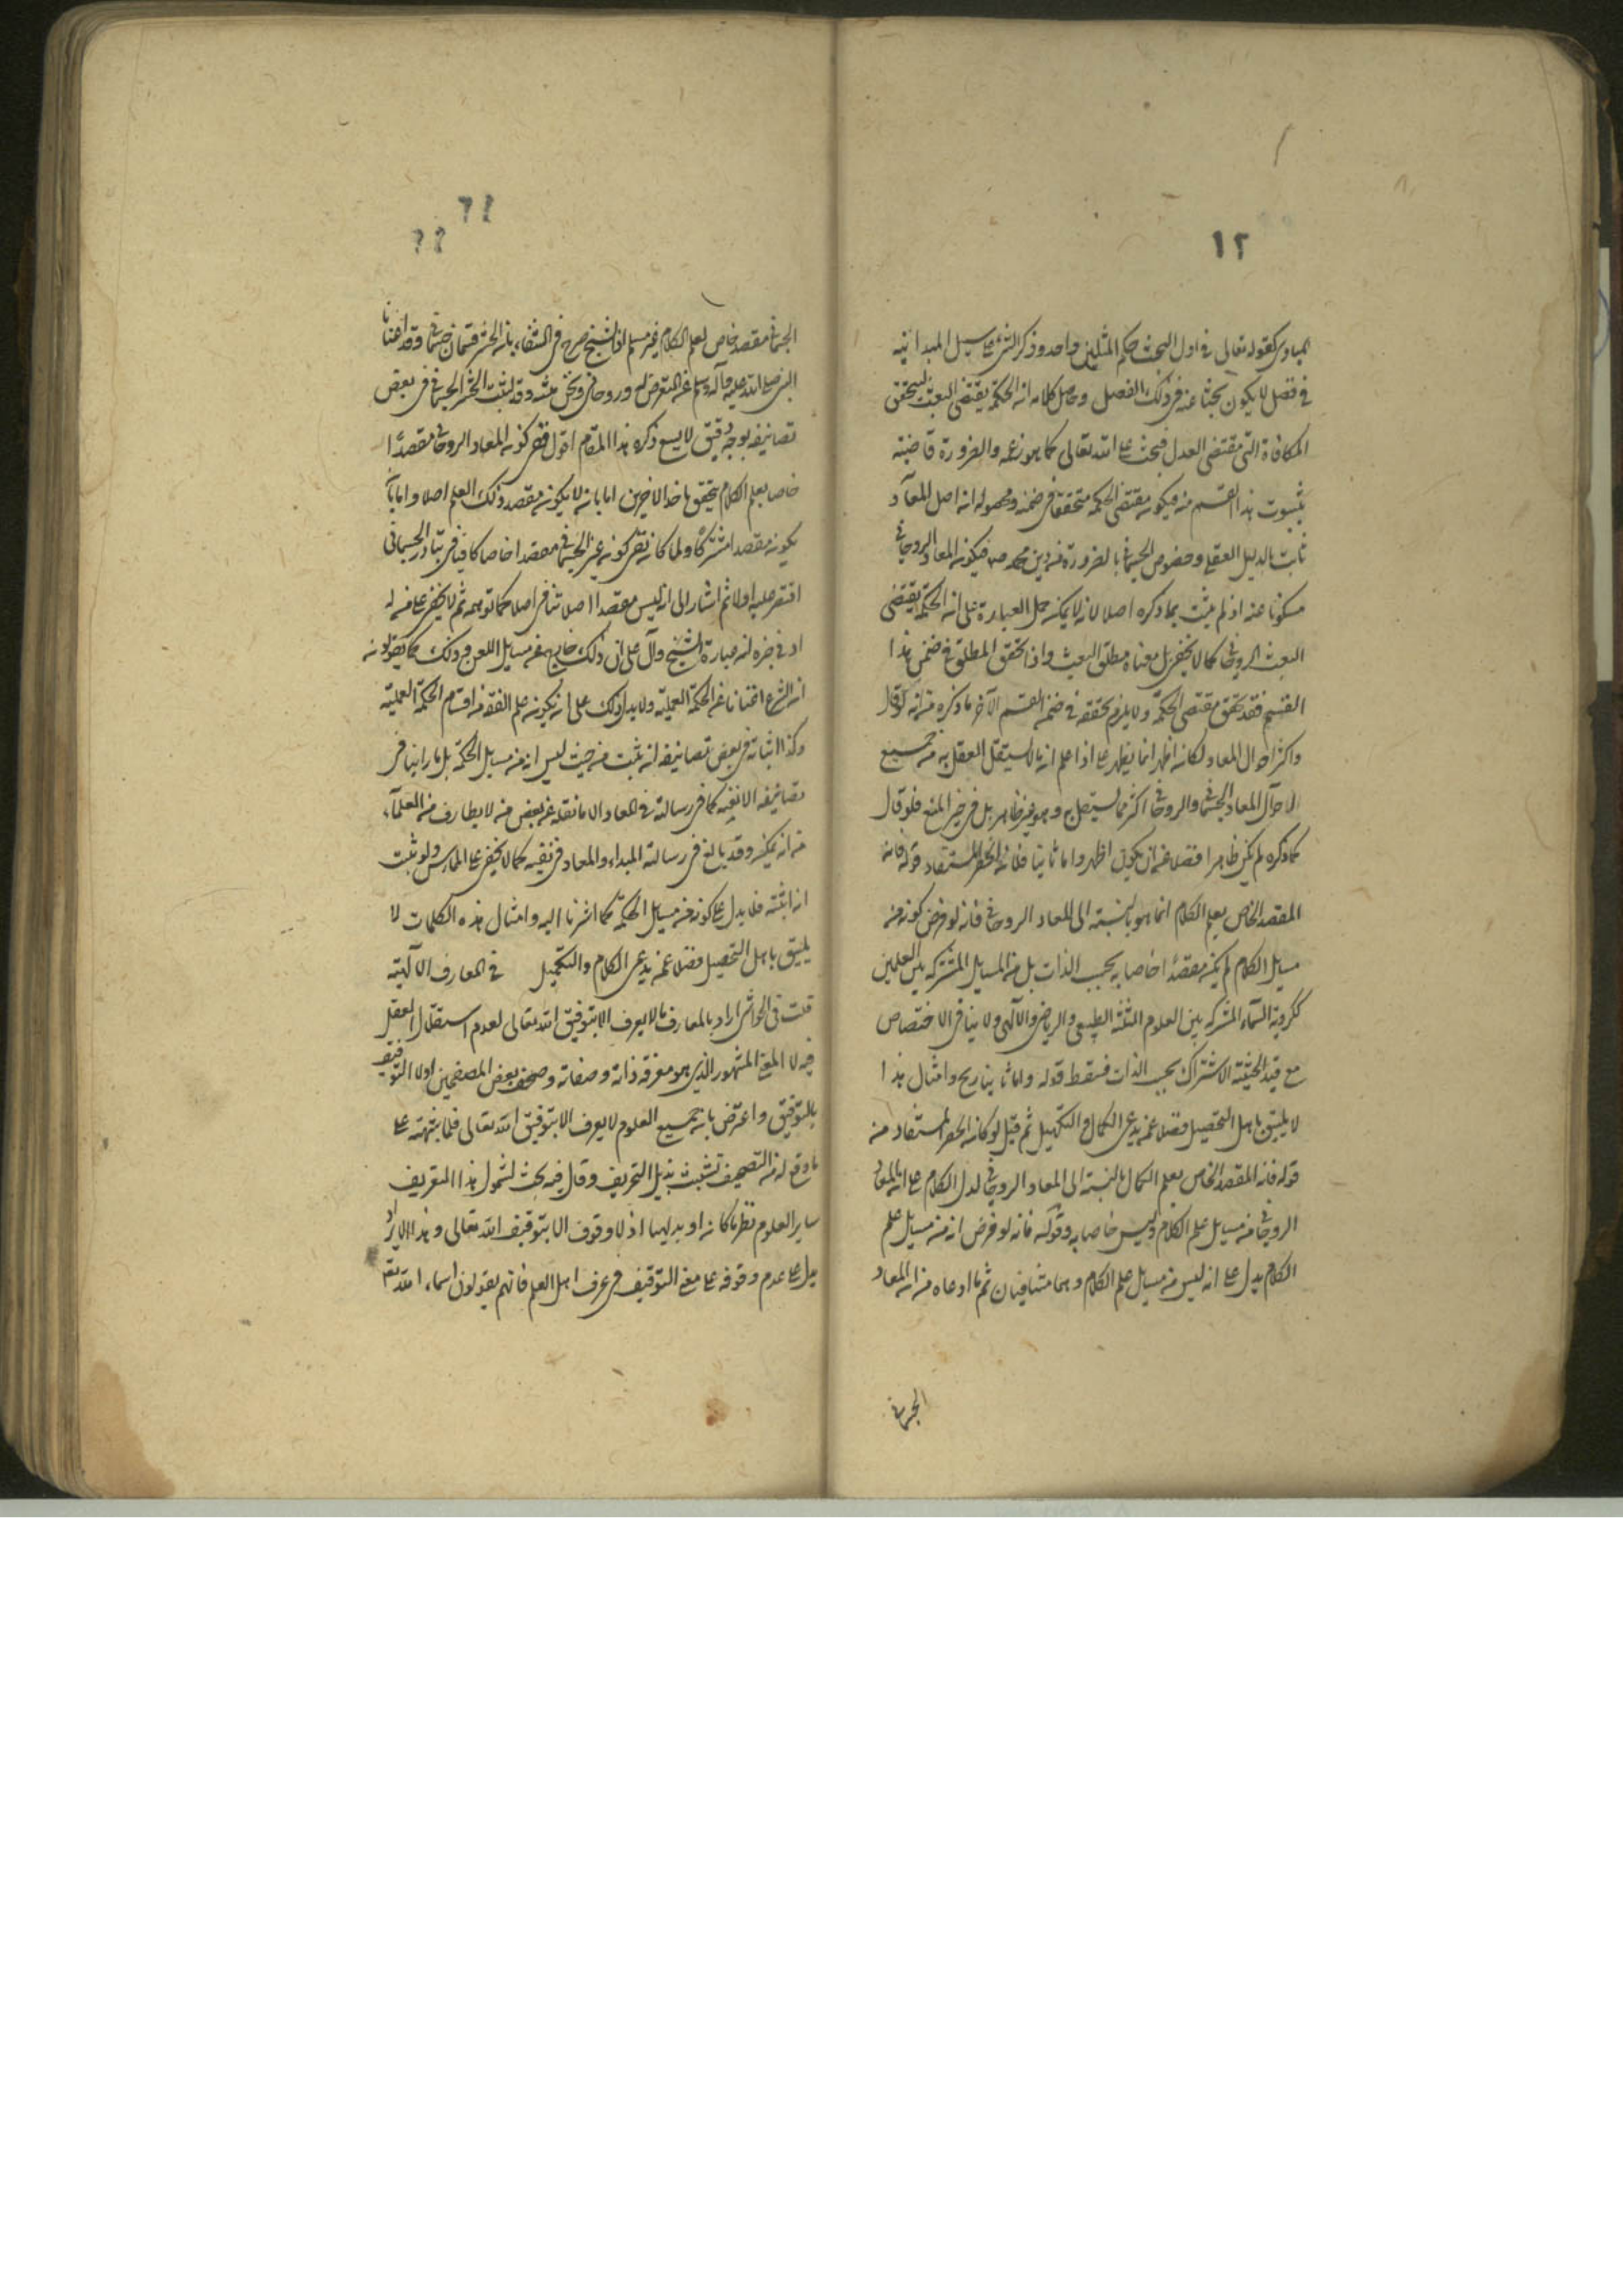 ١٢
المبادى كقوله تعالى فى اول البحث حكم المثلين واحد وذكر الشئ على سبيل المبدائية
فى فصل لا يكون بحثا عنه فى ذلك الفصل وحاصل كلامه ان الحكمة يقتضى البعث ليتحقق
المكافاة التى مقتضى العدل فيجب على الله تعالى كما هو زعمه والضرورة قاضية
بثبوت هذا القسم منه فيكون مقتضى الحكمة متحققا فى ضمنه ومحصوله ان اصل المعاد
ثابت بالدليل العقلى وخصوص الجسمانى بالضرورة من دين محمد ص فيكون المعاد الروحانى
مسكوتا عنه اذ لم يثبت بما ذكره اصلا لانه لا يمكن حمل العبارة على ان الحكمة يقتضى
البعث الروحانى كما لا يخفى بل معناه مطلق البعث واذا تحقق المطلق فى ضمن هذا
القسم فقد تحقق مقتضى الحكمة ولا يلزم تحققه فى ضمن القسم الآخر ما ذكره من انه لو قال
واكثر احوال المعاد لكان اظهر انما يظهر على اذا علم ان ما لا يستقل العقل به من جميع
احوال المعاد الجسمانى والروحانى اكثر مما يستقل به وهو غير ظاهر بل فى حيز المنع فلو قال
كما ذكره لم يكن ظاهرا فضلا عن ان يكون اظهر واما ثانيا فلان الحصر المستفاد قوله فانه
المقصد الخاص بعلم الكلام انما هو بالنسبة الى المعاد الروحانى فانه لو فرض كونه من
مسايل الكلام لم يكن مقصدا خاصا به بحسب الذات بل من المسايل المشتركة بين العلمين
ككروية السماء المشتركة بين العلوم الثلثة الطبيعى والرياضى والآلهى ولا ينافى الاختصاص
مع قيد الحيثية الاشتراك بحسب الذات فسقط قوله واما ثانيا ريح وامثال هذا
لا يليق باهل التحصيل فضلا عمن يدعى الكمال والتكميل ثم قيل لو كان الحصر المستفاد من
قوله فانه المقصد الخاص بعلم الكمال بالنسبة الى المعاد الروحانى لدل الكلام على ان المعاد
الروحانى من مسايل علم الكلام وليس خاصا به وقوله فانه لو فرض انه من مسايل علم
الكلام يدل على انه ليس من مسايل علم الكلام وهما متنافيان ثم ما ادعاه من ان المعاد
الجسمانى
الجسمانى مقصد خاص لعلم الكلام غير مسلم لان الشيخ صرح فى الشفاء بان الحشر قسمان جسمانى وقد اغنانا
النبى صلى الله عليه وآله وسلم عن التعرض له وروحانى ونحن نثبته وقد اثبت الحشر الجسمانى فى بعض
تصانيفه بوجه دقيق لا يسع ذكره هذا المقام اقول نفى كونه المعاد الروحانى مقصدا
خاصا بعلم الكلام يتحقق باحد الامرين اما بان لا يكون مقصد ذلك العلم اصلا واما بان
يكون مقصدا مشتركا ولما كان نفى كونه غير الجسمانى مقصدا خاصا كافيا فى تبادر الجسمانى
اقتصر عليه اولا ثم اشار الى انه ليس مقصدا اصلا تنافى اصلا كما توهمه ثم لا يخفى على من له
ادنى خبرة ان عبارة الشيخ دال على ان ذلك خارج عن مسايل الفن وذلك كما يقولون
ان الشرع اغنانا عن الحكمة العملية ولا يدل ذلك على ان يكون علم الفقه من اقسام الحكمة العملية
وكذا اثباته فى بعض تصانيفه انه يثبت من حيث ليس انه من مسايل الحكمة بل ما راينا فى
تصانيفه الا نفيه كما فى رسالته فى المعاد الا ما نقله عن بعض من لا يطارف من العلماء
من انه يمكن وقد بالغ فى رسالته المبداء والمعاد فى نفيه كما لا يخفى على الممارس ولو ثبت
انه اثبته فلا يدل على كونه من مسايل الحكمة كما اشرنا اليه وامثال هذه الكلمات لا
يليق باهل التحصيل فضلا عمن يدعى الكلام والتكميل فى المعارف الآلهية
قلت فى الحواشى اراد بالمعارف ما لا يعرف الا بتوفيق الله تعالى لعدم استقلال العقل
فيه لا المعنى المشهور الذى هو معرفة ذاته وصفاته وصحف بعض المصنفين اولا التوقيف
بالتوفيق واعترض بان جميع العلوم لا يعرف الا بتوفيق الله تعالى فلما نبهته على
ما وقع له من التصحيف تشبث بذيل التحريف وقال فيه بحث لشمول هذا التعريف
ساير العلوم نظريا كان او بديهيا اذ لا وقوف الا بتوقيف الله تعالى وهذا الايراد
يدل على عدم وقوفه على معنى التوقيف فى عرف اهل العلم فانهم يقولون اسماء الله تعالى